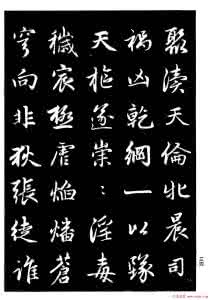 聚瀆天倫牝晨司
禍凶乾綱一以隊
天樞遂崇：淫毒
穢宸極虐焰燔蒼
穹向非狄張徒誰